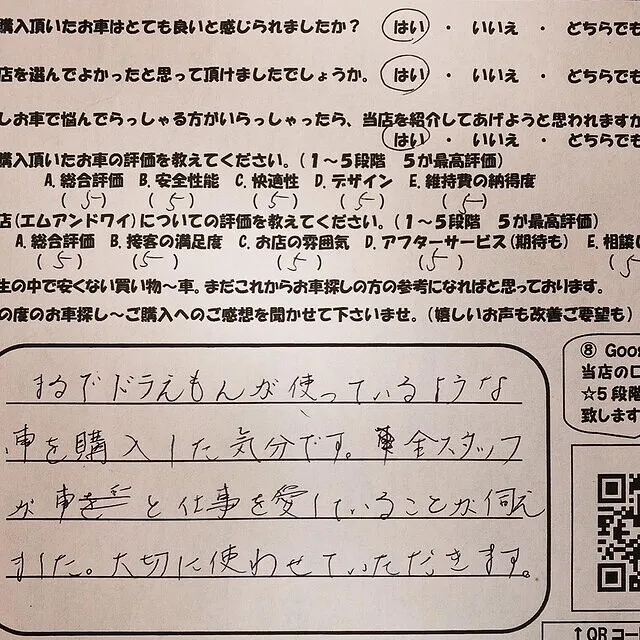 購入頂いたお車はとても良いと感じられましたか？ はい ・ いいえ ・ どちらでも
店を選んでよかったと思って頂けましたでしょうか。 はい ・ いいえ ・ どちらでも
しお車で悩んでらっしゃる方がいらっしゃったら、当店を紹介してあげようと思われますか
はい ・ いいえ ・ どちらでも
購入頂いたお車の評価を教えてください。（１～５段階　５が最高評価）
A. 総合評価 B. 安全性能 C. 快適性 D. デザイン E. 維持費の納得度
(5) (5) (5) (5) (5)
店（エムアンドワイ）についての評価を教えてください。（１～５段階　５が最高評価）
A. 総合評価 B. 接客の満足度 C. お店の雰囲気 D. アフターサービス（期待も） E. 相談
(5) (5) (5) (5) (5
生の中で安くない買い物～車。まだこれからお車探しの方の参考になればと思っております。
の度のお車探し～ご購入へのご感想を聞かせて下さいませ。（嬉しいお声も改善ご要望も）
まるでドラえもんが使っているような
車を購入した気分です。全スタッフ
が車と仕事を愛していることが伺え
ました。大切に使わせていただきます。
⑧ Goo
当店の口
☆５段階
致します
↑QRコー